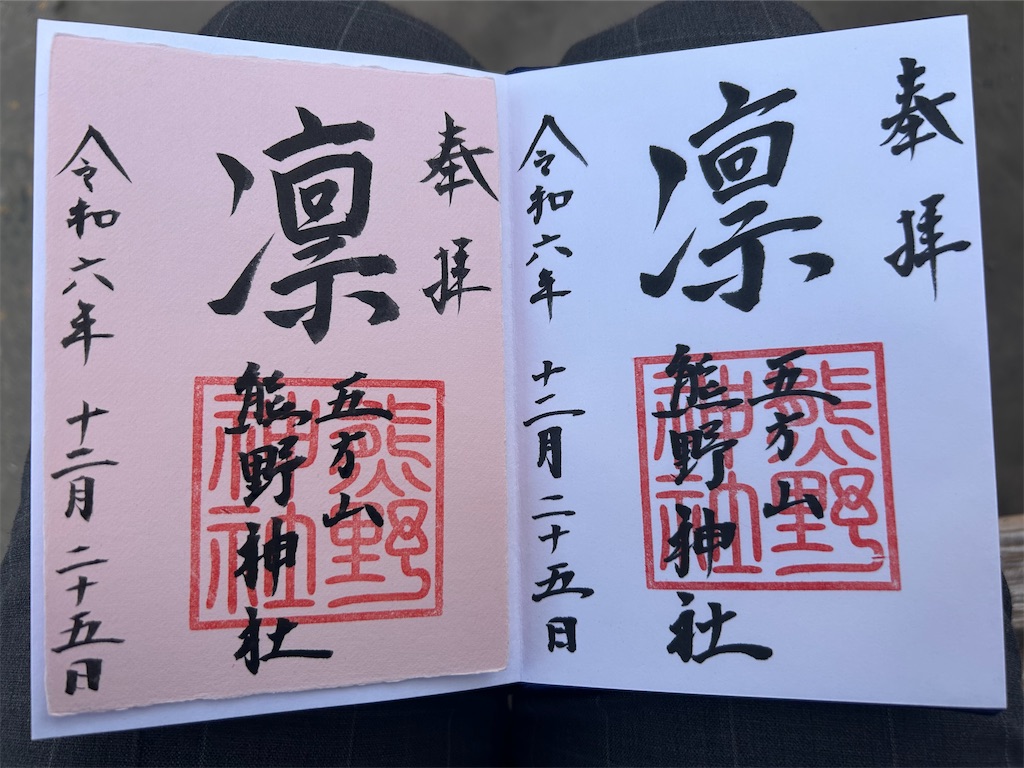 奉拝
凛
五方山
熊野神社
熊野
神社
令和六年 十二月 二十五日
奉拝
凛
五方山
熊野神社
熊野
神社
令和六年 十二月 二十五日